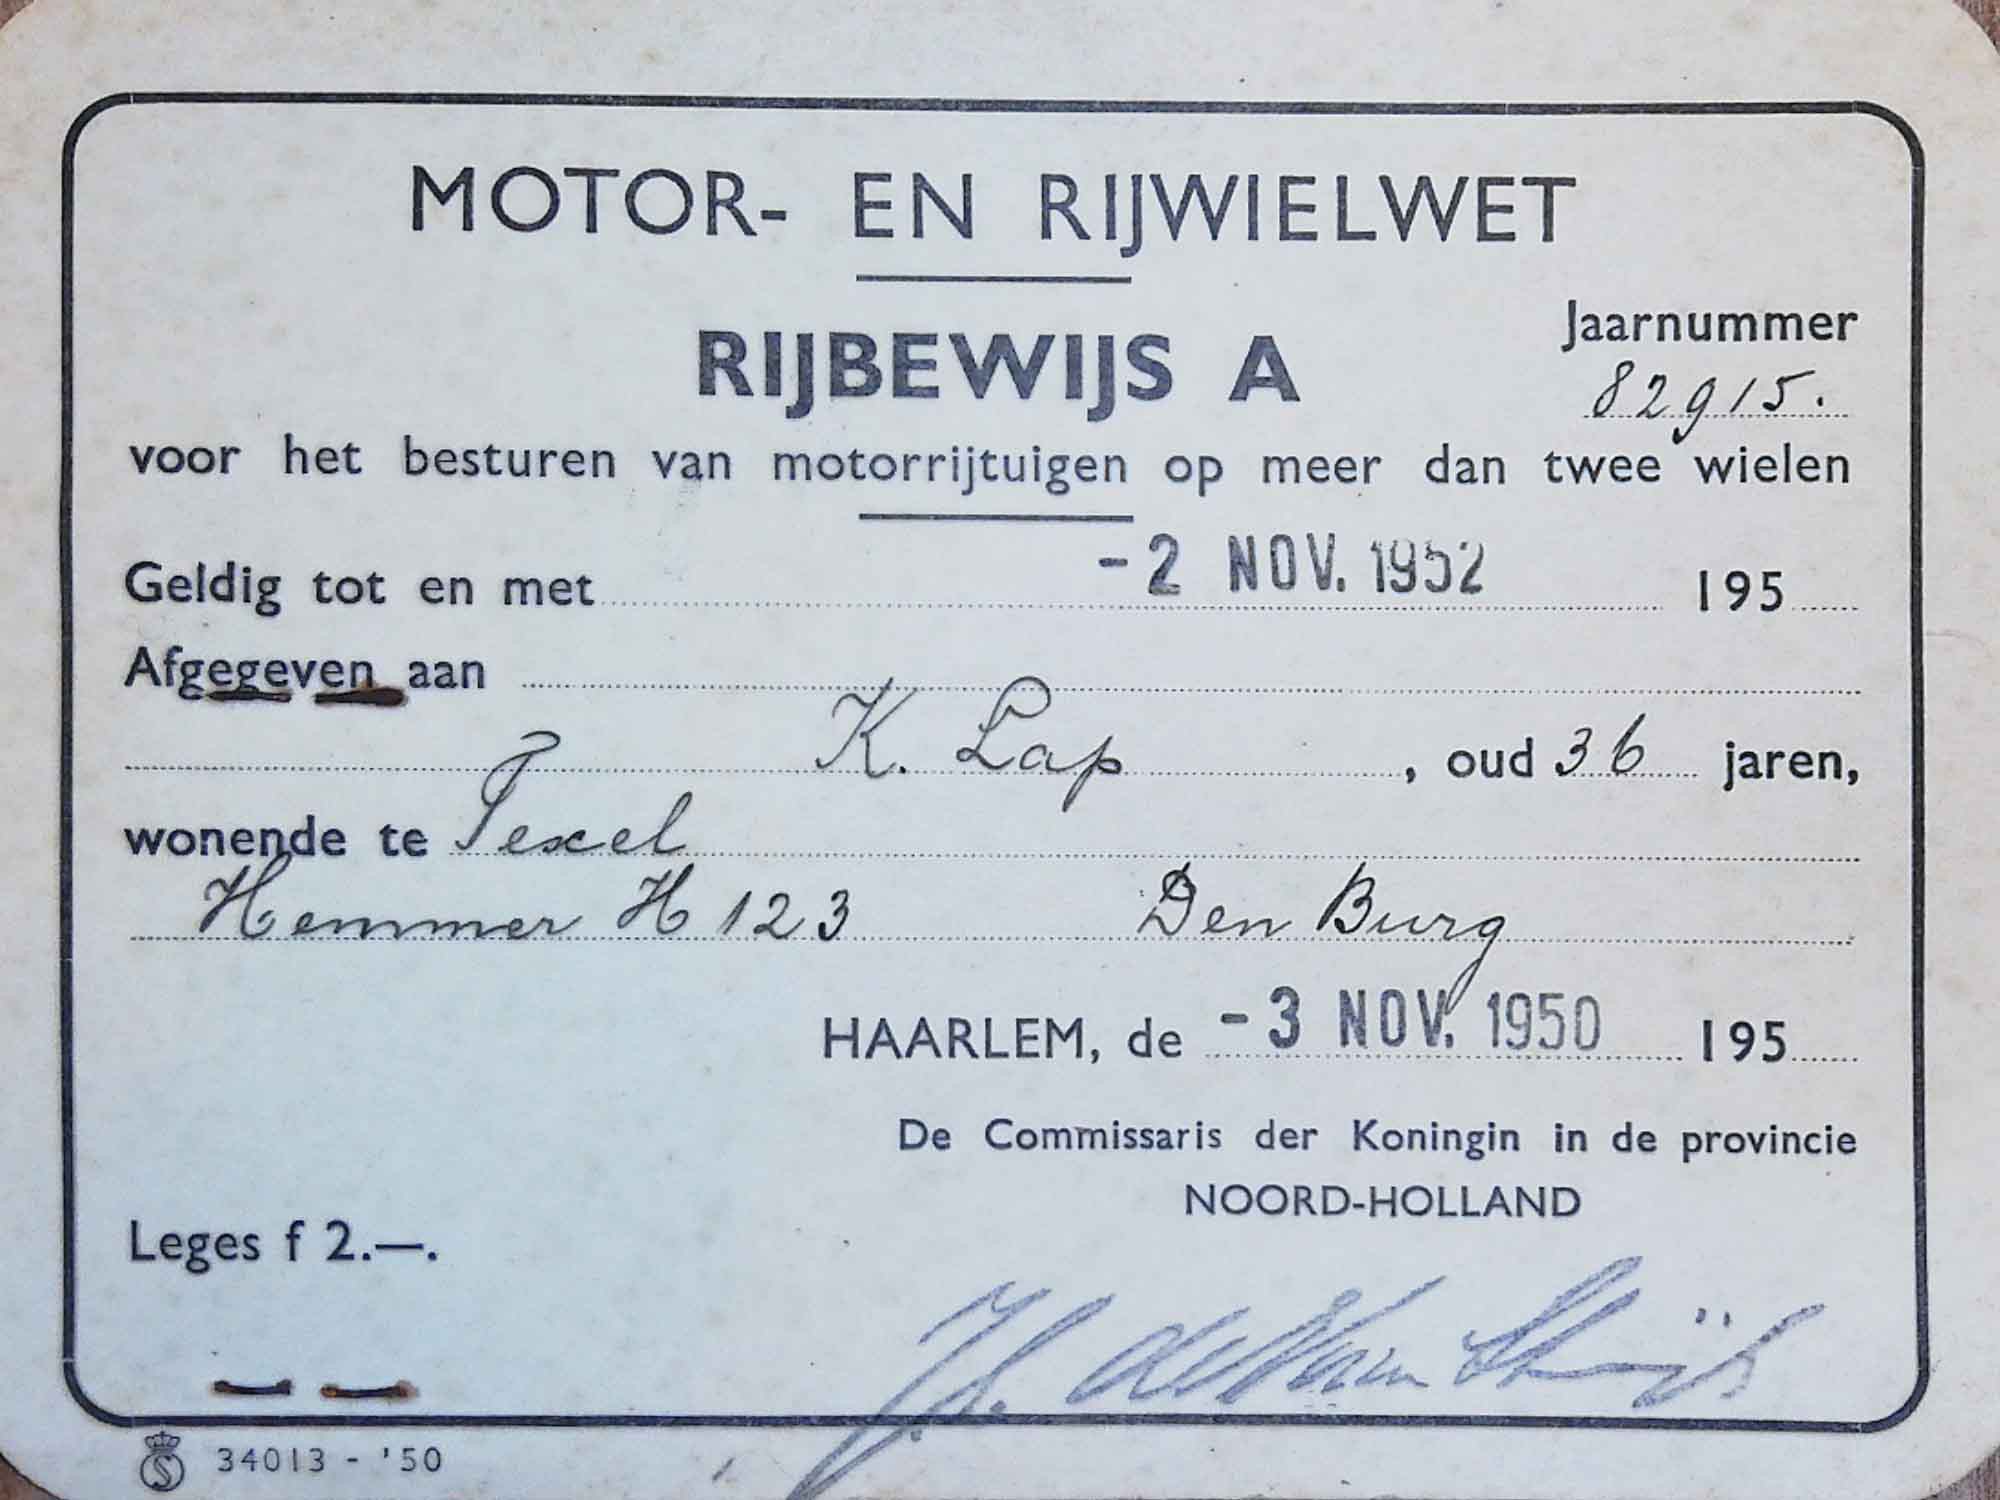 MOTOR- EN RIJWIELWET
RIJBEWIJS A
Jaarnummer
82915.
voor het besturen van motorrijtuigen op meer dan twee wielen
Geldig tot en met -2 NOV. 1952 195
Afgegeven aan
K. Lap, oud 36 jaren,
wonende te Texel
Hemmer H 123 Den Burg
HAARLEM, de -3 NOV. 1950 195
De Commissaris der Koningin in de provincie
NOORD-HOLLAND
Leges f 2.—.
34013 - '50